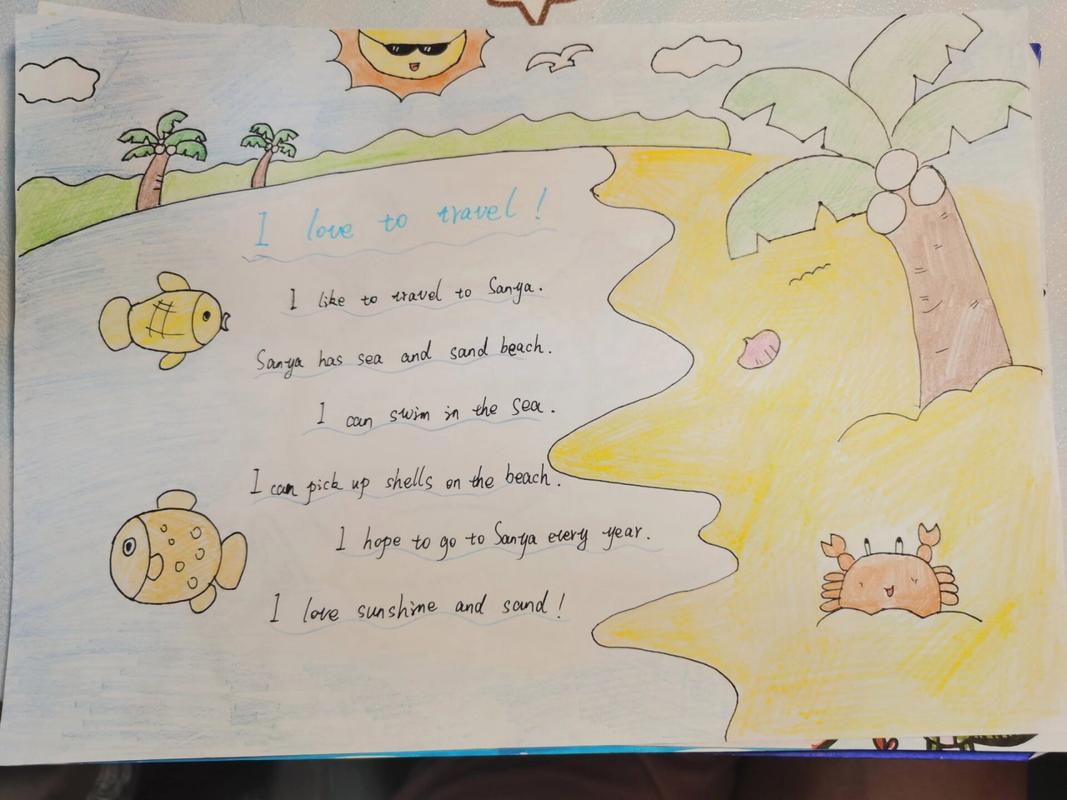 I love to travel!
I like to travel to Sanya.
Sanya has sea and sand beach.
I can swim in the sea.
I can pick up shells on the beach.
I hope to go to Sanya every year.
I love sunshine and sand!